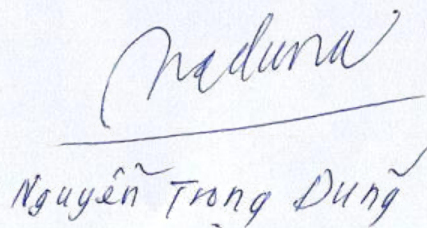 Nguyễn Trọng Dũng